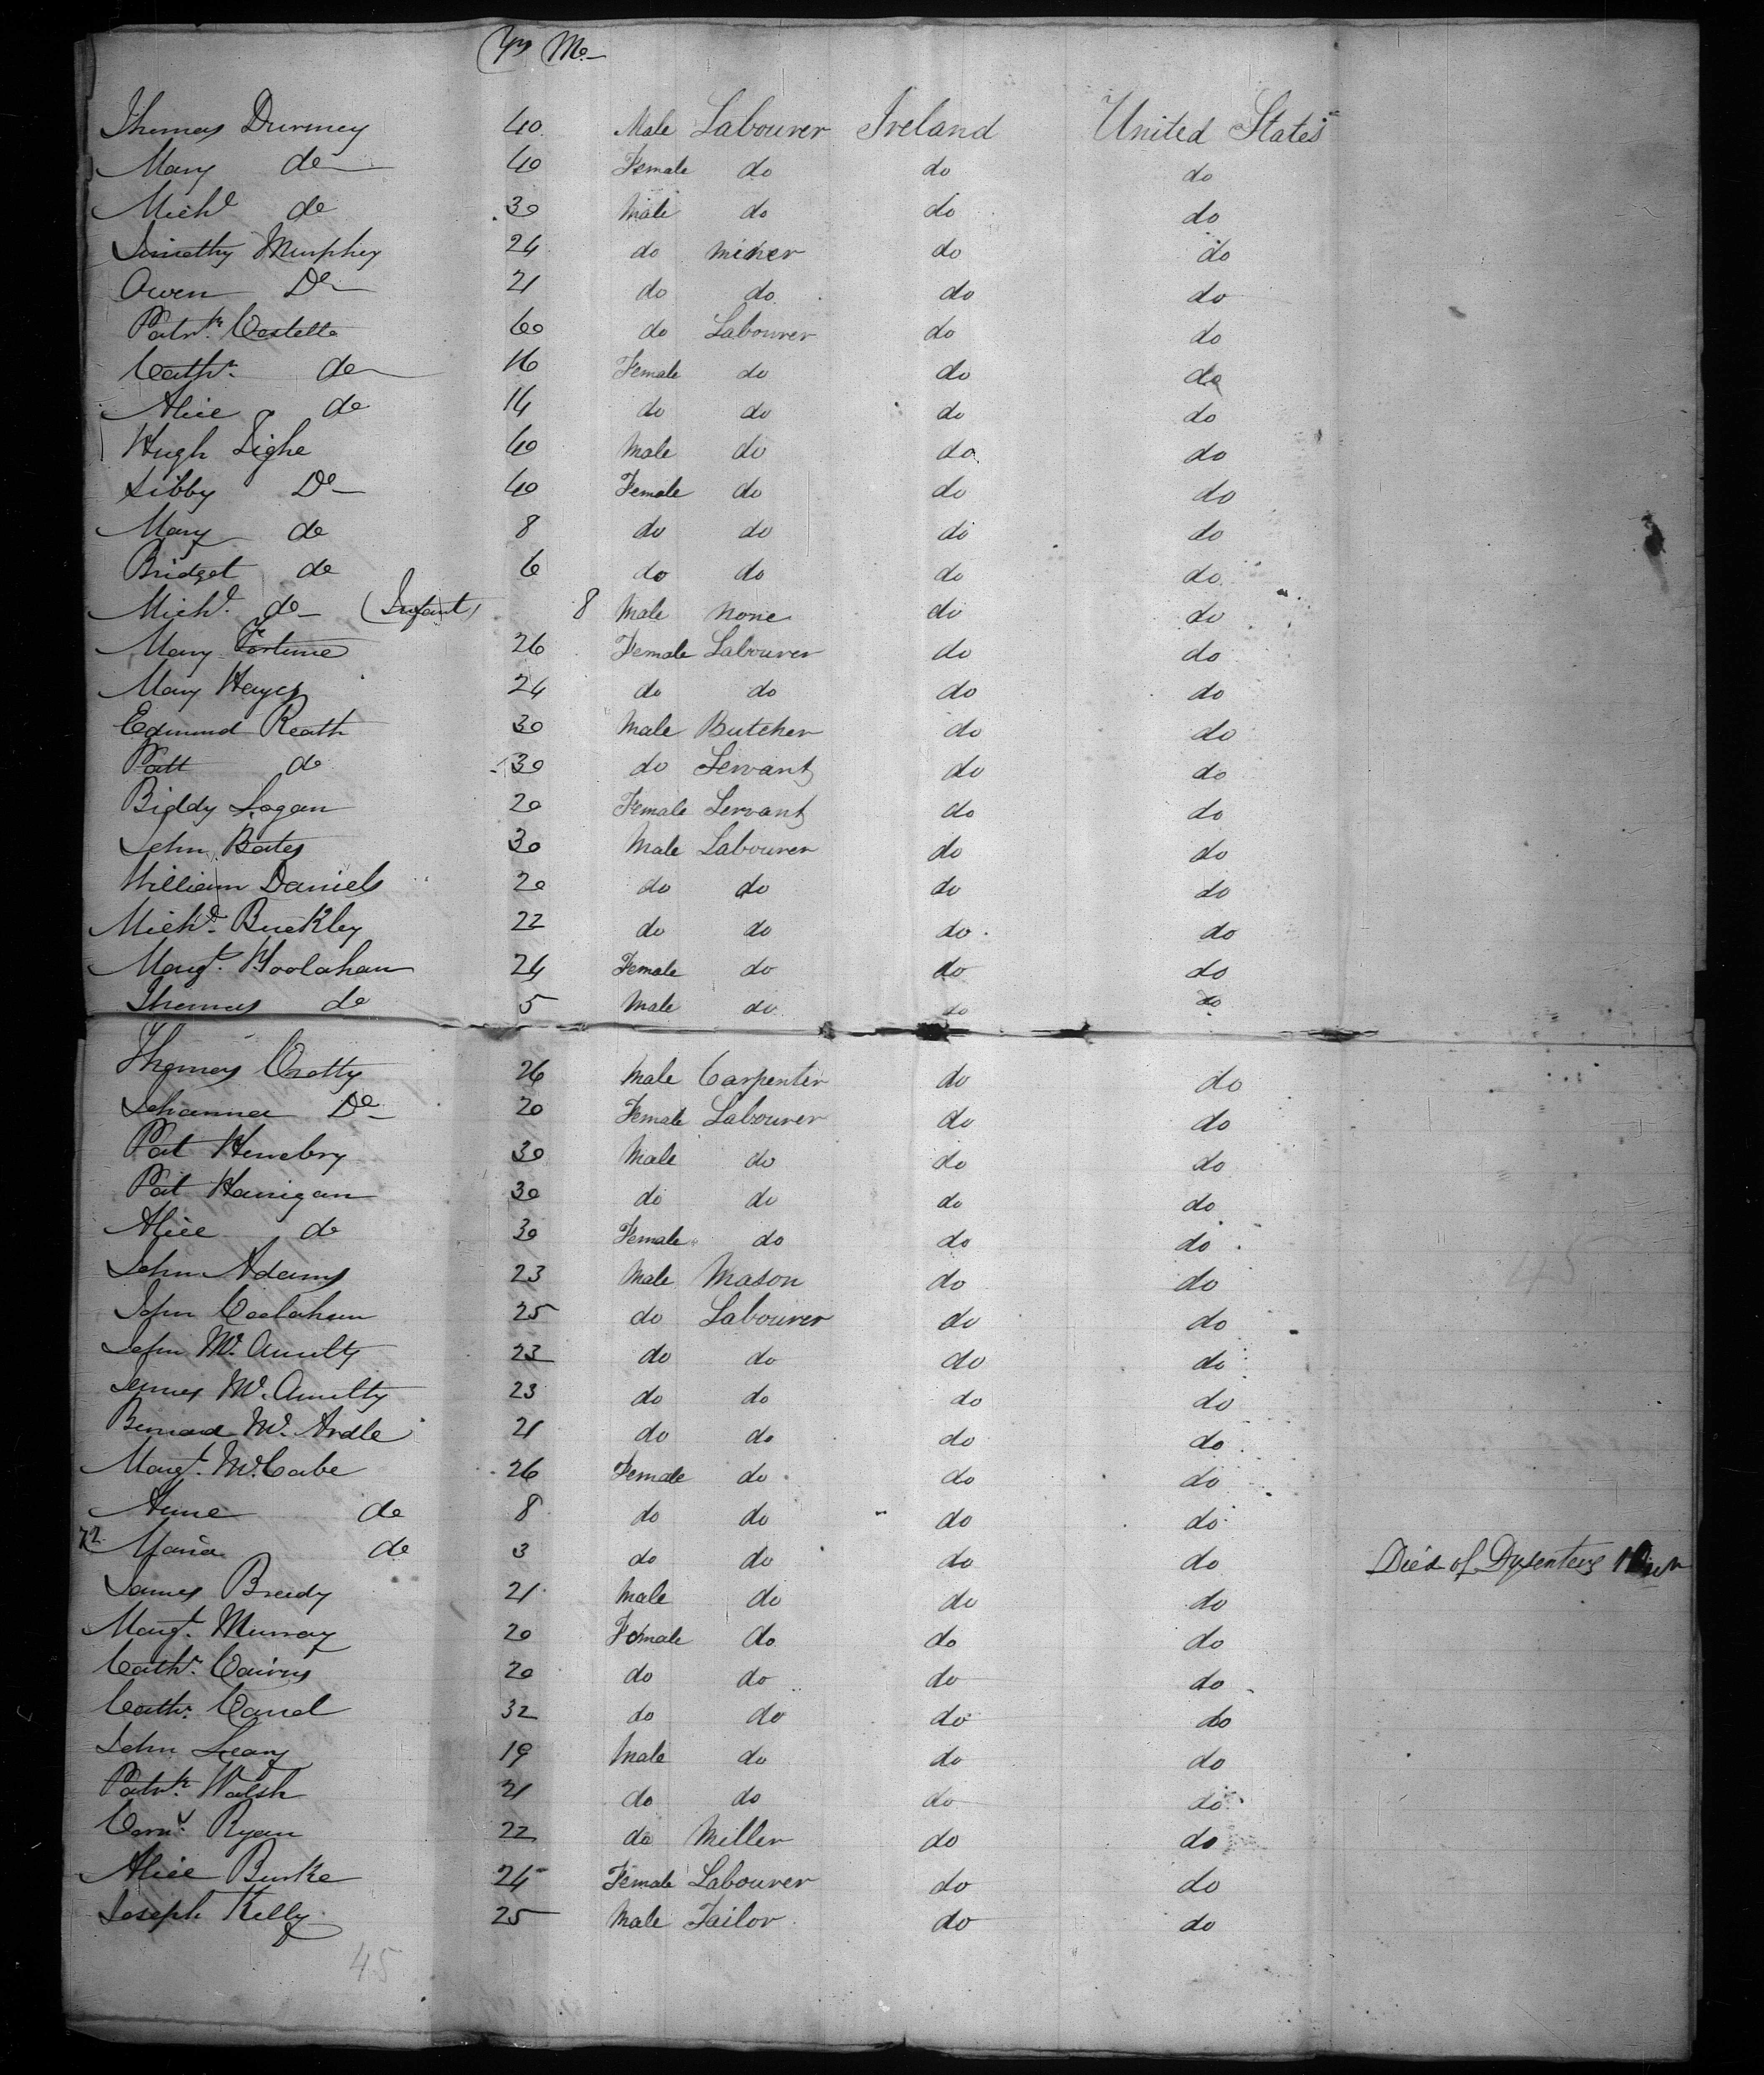 Yrs Mo.
Thomas Durmey 40 Male Labourer Ireland United States
Mary do 40 Female do do do
Michl do 30 Male do do do
Timothy Murphy 24 do Miner do do
Owen Do 21 do do do do
Patrk. Costello 60 do Labourer do do
Cathr. do 16 Female do do do
Alice do 14 do do do do
Hugh Tighe 40 Male do do do
Sibby Do 40 Female do do do
Mary do 8 do do do do
Bridget do 6 do do do do
Michl. do (Infant) 8 Male None do do
Mary Fortune 26 Female Labourer do do
Mary Hayes 24 do do do do
Edmund Reath 30 Male Butcher do do
Patt do 30 do Servant do do
Biddy Logan 20 Female Servant do do
John Bates 30 Male Labourer do do
William Daniels 20 do do do do
Michl. Buckley 22 do do do do
Margt. Hoolahan 24 Female do do do
Thomas do 5 Male do do do
Thomas Cratty 26 Male Carpenter do do
Johanna Do 20 Female Labourer do do
Pat Henebry 30 Male do do do
Pat Hanigan 30 do do do do
Alice do 30 Female do do do
John Adams 23 Male Mason do do
John Coolahan 25 do Labourer do do
John Mc. Anulty 23 do do do do
James Mc. Anulty 23 do do do do
Bernard Mc. Ardle 21 do do do do
Margt. McCabe 26 Female do do do
Anne do 8 do do do do
72 Maria do 3 do do do do Died of Dysentery
James Bready 21 Male do do do
Margt. Murray 20 Female do do do
Cathr. Cairns 20 do do do do
Cathr. Carrol 32 do do do do
John Leary 19 Male do do do
Patrk. Walsh 21 do do do do
Corns. Ryan 22 do Miller do do
Alice Burke 24 Female Labourer do do
Joseph Kelly 25 Male Tailor do do
45